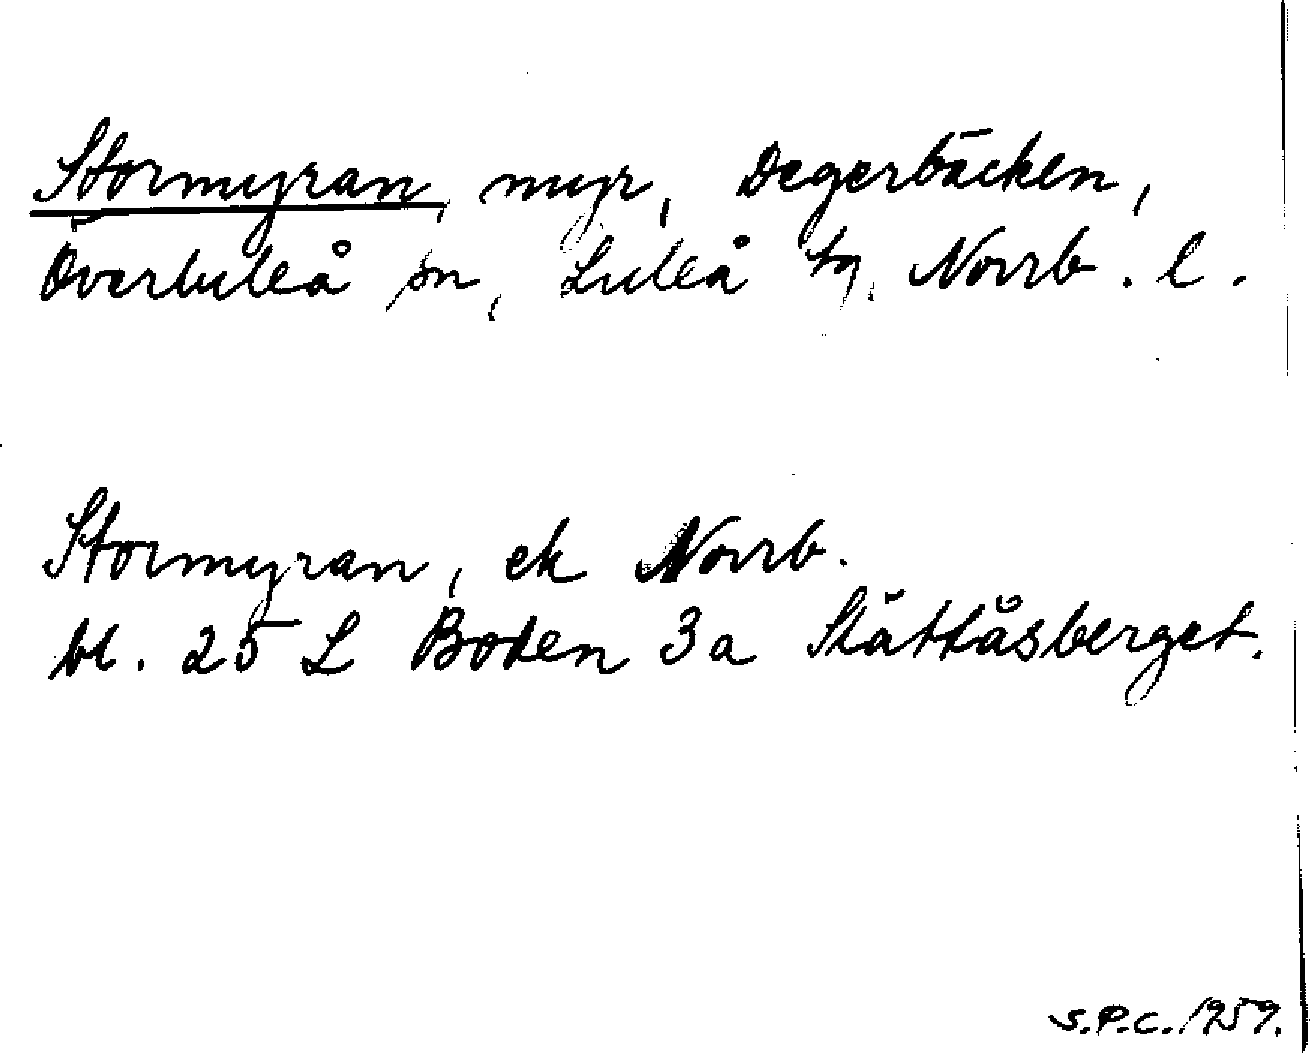 Stormyran, myr, Degerbäcken,
Överluleå sn, Luleå tg. Norrb. l.
Stormyran, ek Norrb.
bl. 25 L Boden 3a Slättåsberget.
S.P.C. 1959.